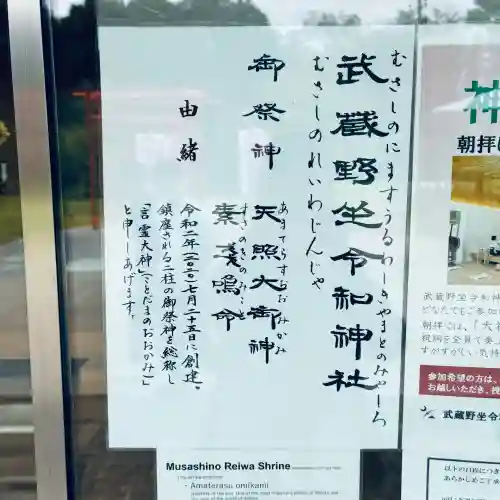 むさしのにますうるわしきやまとのみやしろ
武蔵野坐令和神社
むさしのれいわじんじゃ
御祭神 天照大御神
あまてらすおおみかみ
素戔嗚命
すさのをのみこと
由緒
令和二年(二〇二〇)七月二十五日に創建。
鎮座される二柱の御祭神を総称し
「言霊大神」(ことだまのおおかみ)」
と申しあげます。
Musashino Reiwa Shrine
・Amaterasu omikami
神
朝拝
武蔵野坐令和
どなたでもご参加
朝拝では、「大
祝詞を全員で奏
すがすがしい気持
参加希望の方は、
お越しいただき、
武蔵野坐令
以下の日程につき
あらかじめご了